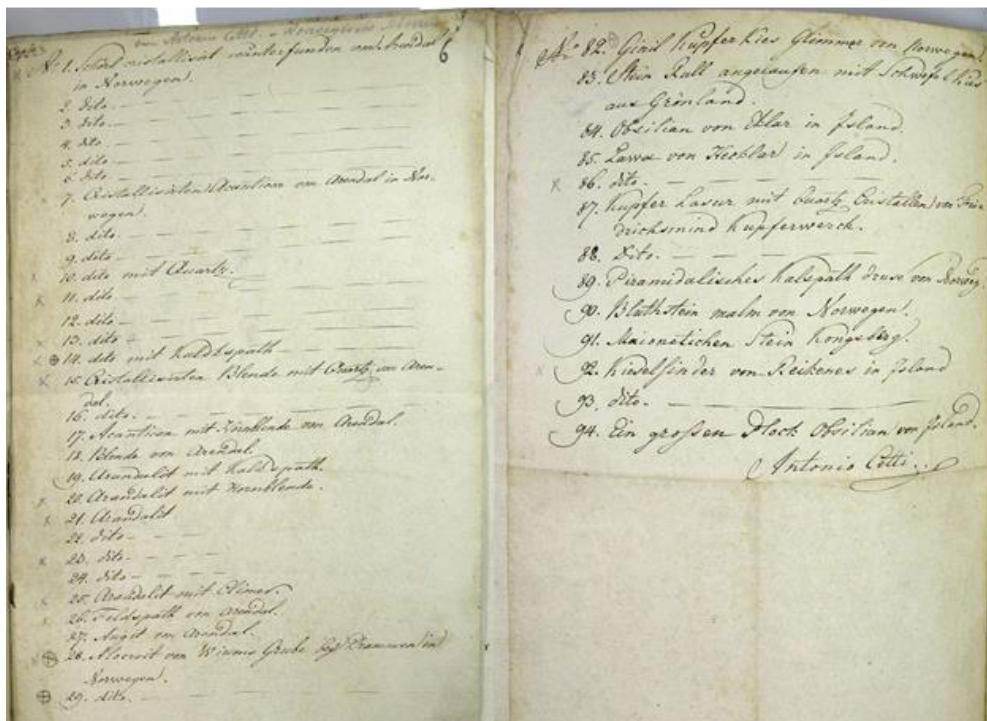 von Antonio Cetti
6
No 1. cristallisirt von Arendal
in Norwegen.
2. dito.
3. dito.
4. dito.
5. dito.
6. dito.
7. Cristallisirten Acanticon von Arendal in Nor-
wegen.
8. dito.
9. dito.
10. dito mit Quartz.
11. dito.
12. dito.
13. dito.
14. dito mit Kaldspath
15. Cristallisirten Blende mit Quartz, von Aren-
dal.
16. dito.
17. Acanticon mit Hornblende von Arendal.
18. Blende von Arendal.
19. Arendalit mit Kaldspath.
20. Arendalit mit Hornblende.
21. Arendalit
22. dito.
23. dito.
24. dito.
25. Arendalit mit Climer.
26. Feldspath von Arendal.
27. Augit von Arendal.
28. von Grube bey Drammen in
Norwegen.
29. dito.
No 82. Kupfer Kies Glimmer von Norwegen.
83. Stein angelaufen mit Schwefel Kies
aus Grönland.
84. Obsilian von in Island.
85. Lawa von Hecklar in Island.
86. dito.
87. Kupfer Lasur mit Quartz Cristallen von Frie-
drichsmind Kupferwerck.
88. Dito.
89. Piramidalisches Kalspath druse von Norweg.
90. Bluthstein malm von Norwegen.
91. Stein Kongsberg.
92. Kieselsinder von Reikenes in Island
93. dito.
94. Ein grossen Block Obsilian von Island.
Antonio Cetti.